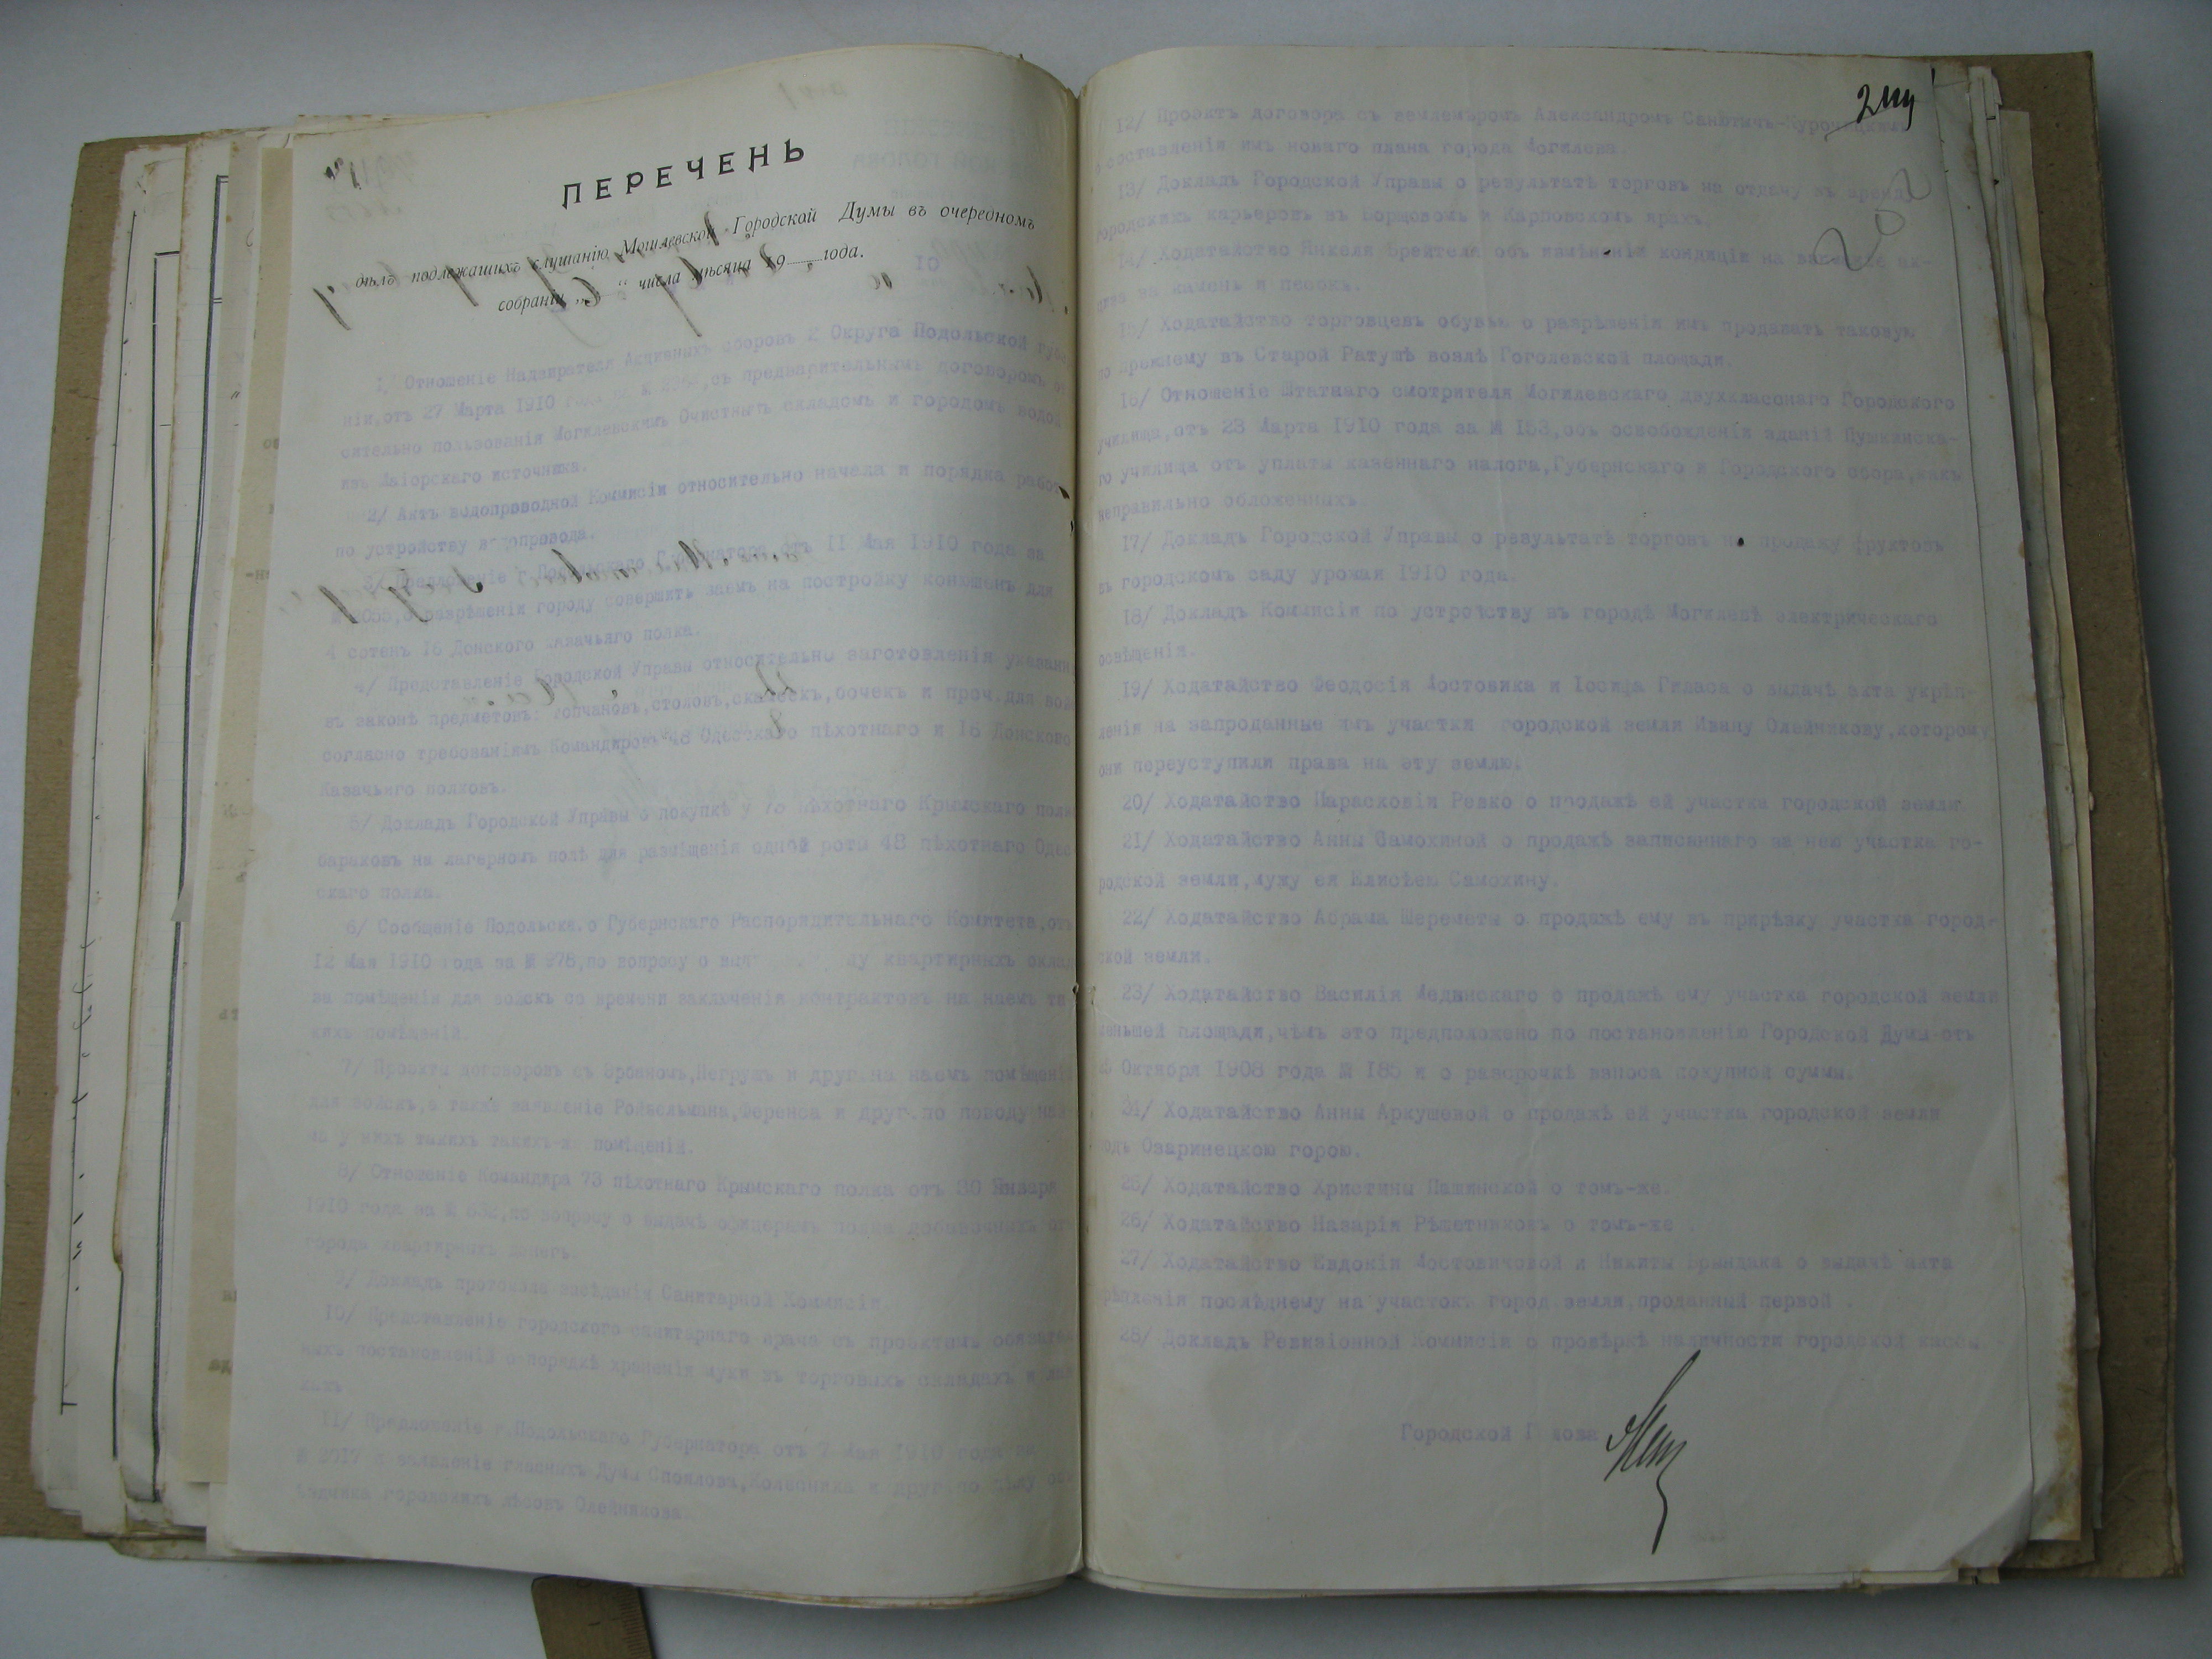 ПЕРЕЧЕНЬ
дѣлъ подлежащихъ слушанію Могилевской Городской Думы въ очередномъ
собраніи „ “ числа мѣсяца 19 года.
1/ Отношеніе Надзирателя Акцизныхъ сборовъ 2 Округа Подольской губер
ніи,отъ 27 Марта 1910 года за № 2366,съ предварительнымъ договоромъ
сительно пользованія Могилевскимъ Очистнымъ складомъ и городомъ водой
изъ источника.
2/ Актъ водопроводной Коммисіи относительно начала и порядка работъ
по устройству водопровода.
3/ Предложеніе г.Подольскаго Губернатора,отъ 11 Мая 1910 года за
№ 2055,о разрѣшеніи городу совершить заемъ на постройку конюшенъ для
4 сотенъ 16 Донского казачьяго полка.
4/ Представленіе Городской Управы относительно заготовленія указанн
въ законѣ предметовъ: топчановъ,столовъ,скамеекъ,бочекъ и проч.для вой
согласно требованіямъ Командировъ 48 Одесскаго пѣхотнаго и 16 Донского
Казачьяго полковъ.
5/ Докладъ Городской Управы о покупкѣ у 73 пѣхотнаго Крымскаго полк
бараковъ на лагерномъ полѣ для размѣщенія одной роты 48 пѣхотнаго Одес
скаго полка.
6/ Сообщеніе Подольскаго Губернскаго Распорядительнаго Комитета,отъ
12 Мая 1910 года за № 978,по вопросу о квартирныхъ оклад
за помѣщенія для войскъ со времени заключенія контрактовъ на наемъ та
кихъ помѣщеній.
7/ Проекты договоровъ съ и друг.на наемъ помѣщеній
для войскъ,а также заявленіе Ройзельмана,Ференса и друг.по поводу най
ма у нихъ такихъ такихъ-же помѣщеній.
8/ Отношеніе Командира 73 пѣхотнаго Крымскаго полка отъ 30 Января
1910 года за № 632,по вопросу о выдачѣ офицерамъ полка добавочныхъ от
города квартирныхъ денегъ.
9/ Докладъ протокола засѣданія Санитарной Коммисіи
10/ Представленіе городского санитарнаго врача съ проектомъ обязател
ныхъ постановленій о порядкѣ храненія муки въ торговыхъ складахъ и лав
кахъ
11/ Предложеніе г.Подольскаго Губернатора отъ 7 Мая 1910 года за
№ 2017 и заявленіе гласныхъ Думы Споялова,Колесника и друг.по дѣлу об
ѣздчика городскихъ лѣсовъ Олейникова.
12/ Проэктъ договора съ землемѣромъ Александромъ
о составленіи имъ новаго плана города Могилева.
13/ Докладъ Городской Управы о результатѣ торговъ на отдачу въ аренду
городскихъ карьеровъ въ Борщовомъ и Карповскомъ ярахъ.
14/ Ходатайство Янкеля Брейтела объ измѣненіи кондиціи на взиманіе ак-
циза за камень и песокъ.
15/ Ходатайство торговцевъ обувью о разрѣшеніи имъ продавать таковую
по прежнему въ Старой Ратушѣ возлѣ Гоголевской площади.
16/ Отношеніе Штатнаго смотрителя Могилевскаго двухкласснаго Городского
училища,отъ 23 Марта 1910 года за № 153,объ освобожденіи зданій Пушкинска-
го училища отъ уплаты казеннаго налога,Губернскаго и Городского сбора,какъ
неправильно обложенныхъ.
17/ Докладъ Городской Управы о результатѣ торговъ на продажу фруктовъ
въ городскомъ саду урожая 1910 года.
18/ Докладъ Коммисіи по устройству въ городѣ Могилевѣ электрическаго
освѣщенія.
19/ Ходатайство Феодосія Мостовика и Іосифа Гиласа о выдачѣ акта укрѣп-
ленія на запроданные имъ участки городской земли Ивану Олейникову,которому
они переуступили права на эту землю.
20/ Ходатайство Парасковіи Ревко о продажѣ ей участка городской земли
21/ Ходатайство Анны Самохиной о продажѣ записаннаго за нею участка го-
родской земли,мужу ея Елисѣею Самохину.
22/ Ходатайство Абрама Шереметы о продажѣ ему въ прирѣзку участка город-
ской земли.
23/ Ходатайство Василія Мединскаго о продажѣ ему участка городской земли
меньшей площади,чѣмъ это предположено по постановленію Городской Думы отъ
Октября 1908 года № 185 и о разсрочкѣ взноса покупной суммы.
24/ Ходатайство Анны Аркушевой о продажѣ ей участка городской земли
подъ Озаринецкою горою.
25/ Ходатайство Христины Пашинской о томъ-же.
26/ Ходатайство Назарія Рѣшетникова о томъ-же .
27/ Ходатайство Евдокіи Мостовичовой и Никиты Бриндака о выдачѣ акта
укрѣпленія послѣднему на участокъ город.земли,проданный первой .
28/ Докладъ Ревизіонной Коммисіи о провѣркѣ наличности городской кассы
Городской Голова